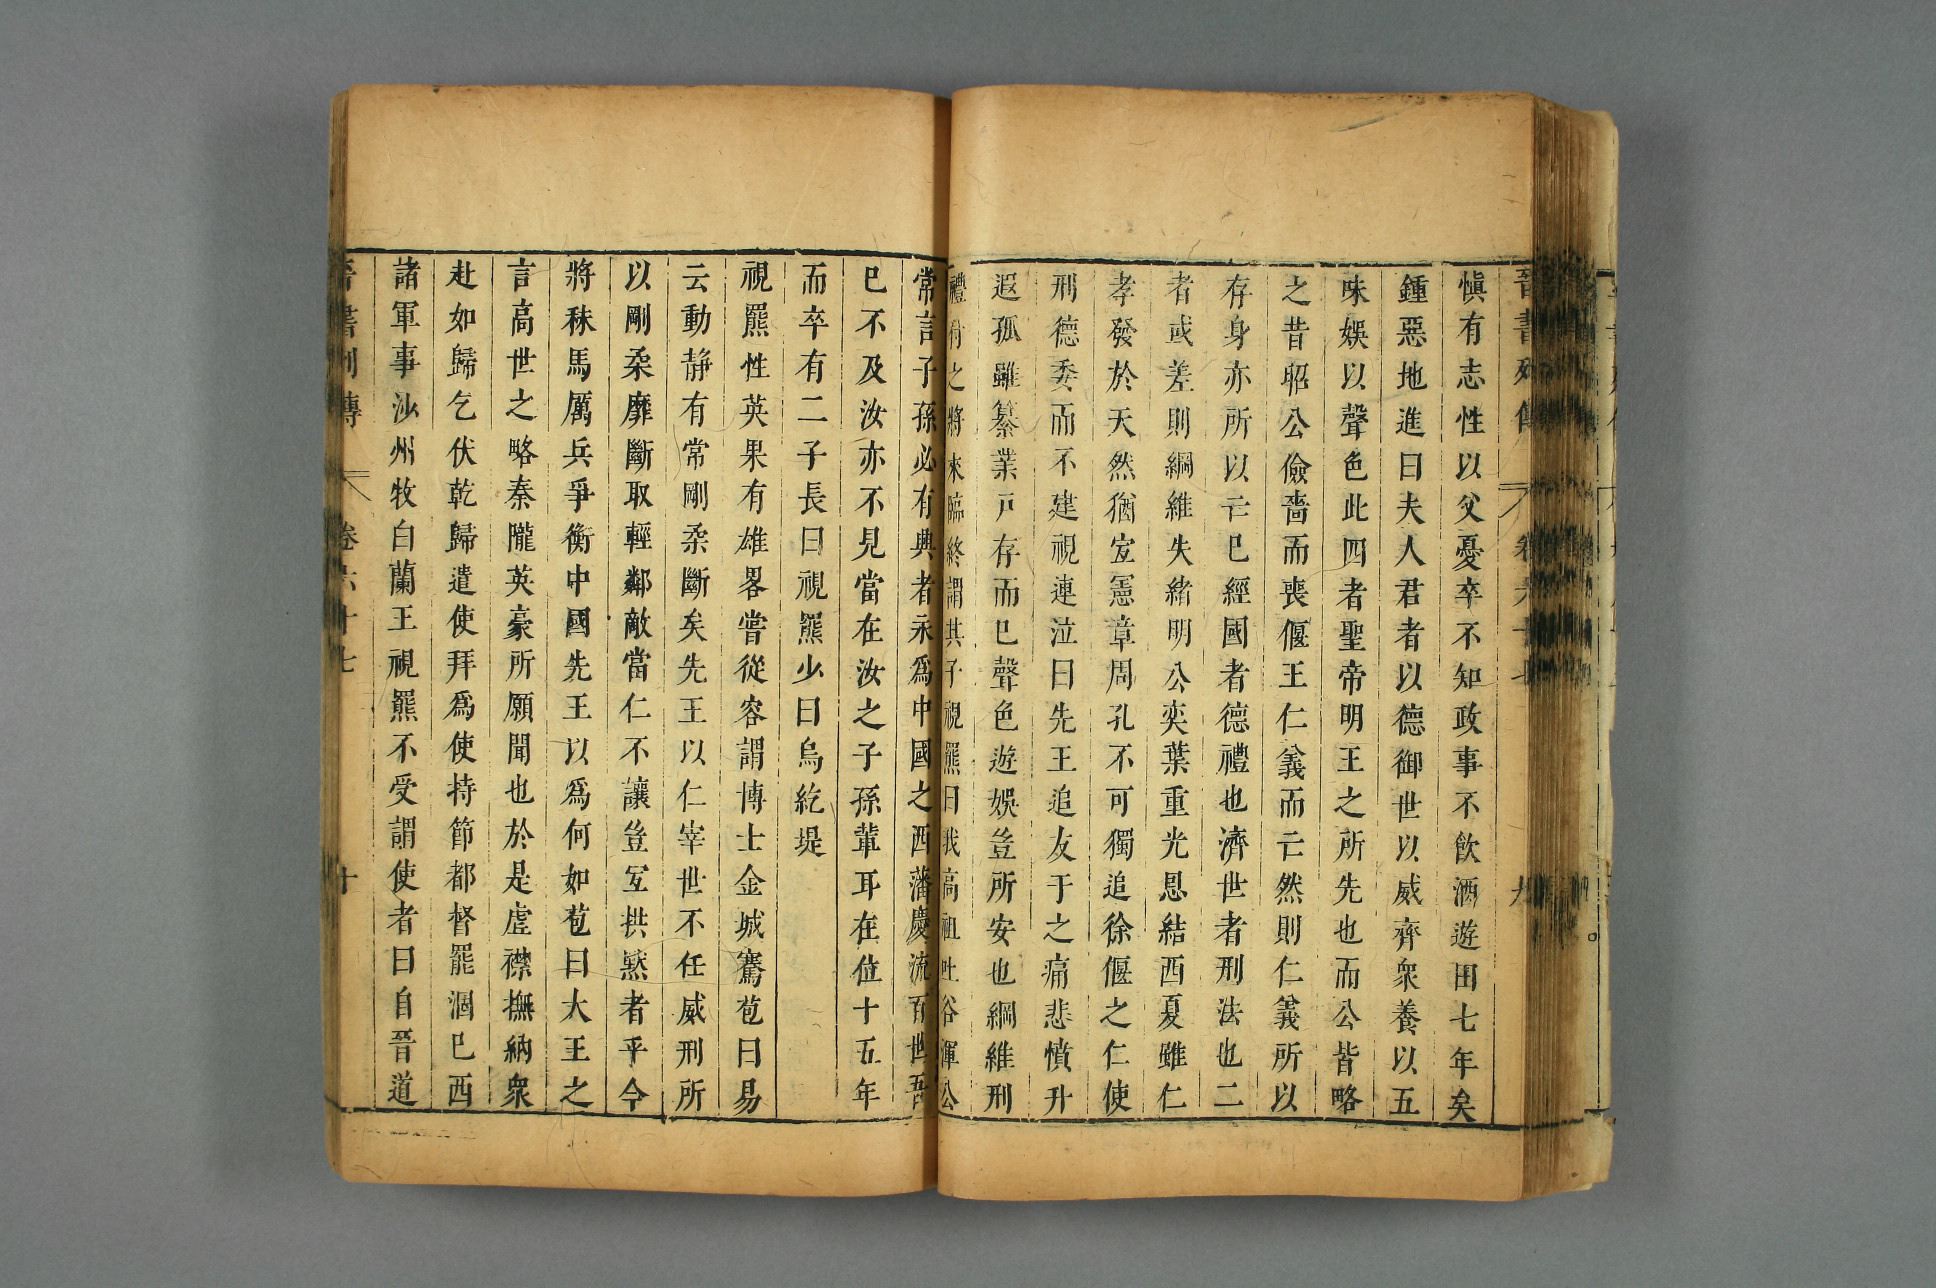 晉書列傳 卷六十七 九
愼有志性以父憂卒不知政事不飲酒遊田七年矣
鍾惡地進曰夫人君者以德御世以威齊衆養以五
味娛以聲色此四者聖帝明王之所先也而公皆略
之昔昭公儉嗇而喪偃王仁義而亡然則仁義所以
存身亦所以亡巳經國者德禮也濟世者刑法也二
者或差則綱維失緒明公奕葉重光恩結西夏雖仁
孝發於天然猶宜憲章周孔不可獨追徐偃之仁使
刑德委而不建視連泣曰先王追友于之痛悲憤升
遐孤雖纂業尸存而巳聲色遊娛豈所安也綱維刑
禮付之將來臨終謂其子視羆曰我高祖吐谷渾公
常言子孫必有興者永爲中國之西藩慶流百世吾
巳不及汝亦不見當在汝之子孫輩耳在位十五年
而卒有二子長曰視羆少曰烏紇堤
視羆性英果有雄畧嘗從容謂博士金城騫苞曰易
云動靜有常剛柔斷矣先王以仁宰世不任威刑所
以剛柔靡斷取輕鄰敵當仁不讓豈宜拱默者乎今
將秣馬厲兵爭衡中國先王以爲何如苞曰大王之
言高世之略秦隴英豪所願聞也於是虛襟撫納衆
赴如歸乞伏乾歸遣使拜爲使持節都督龍涸巳西
諸軍事沙州牧白蘭王視羆不受謂使者曰自晉道
晉書列傳 卷六十七 十